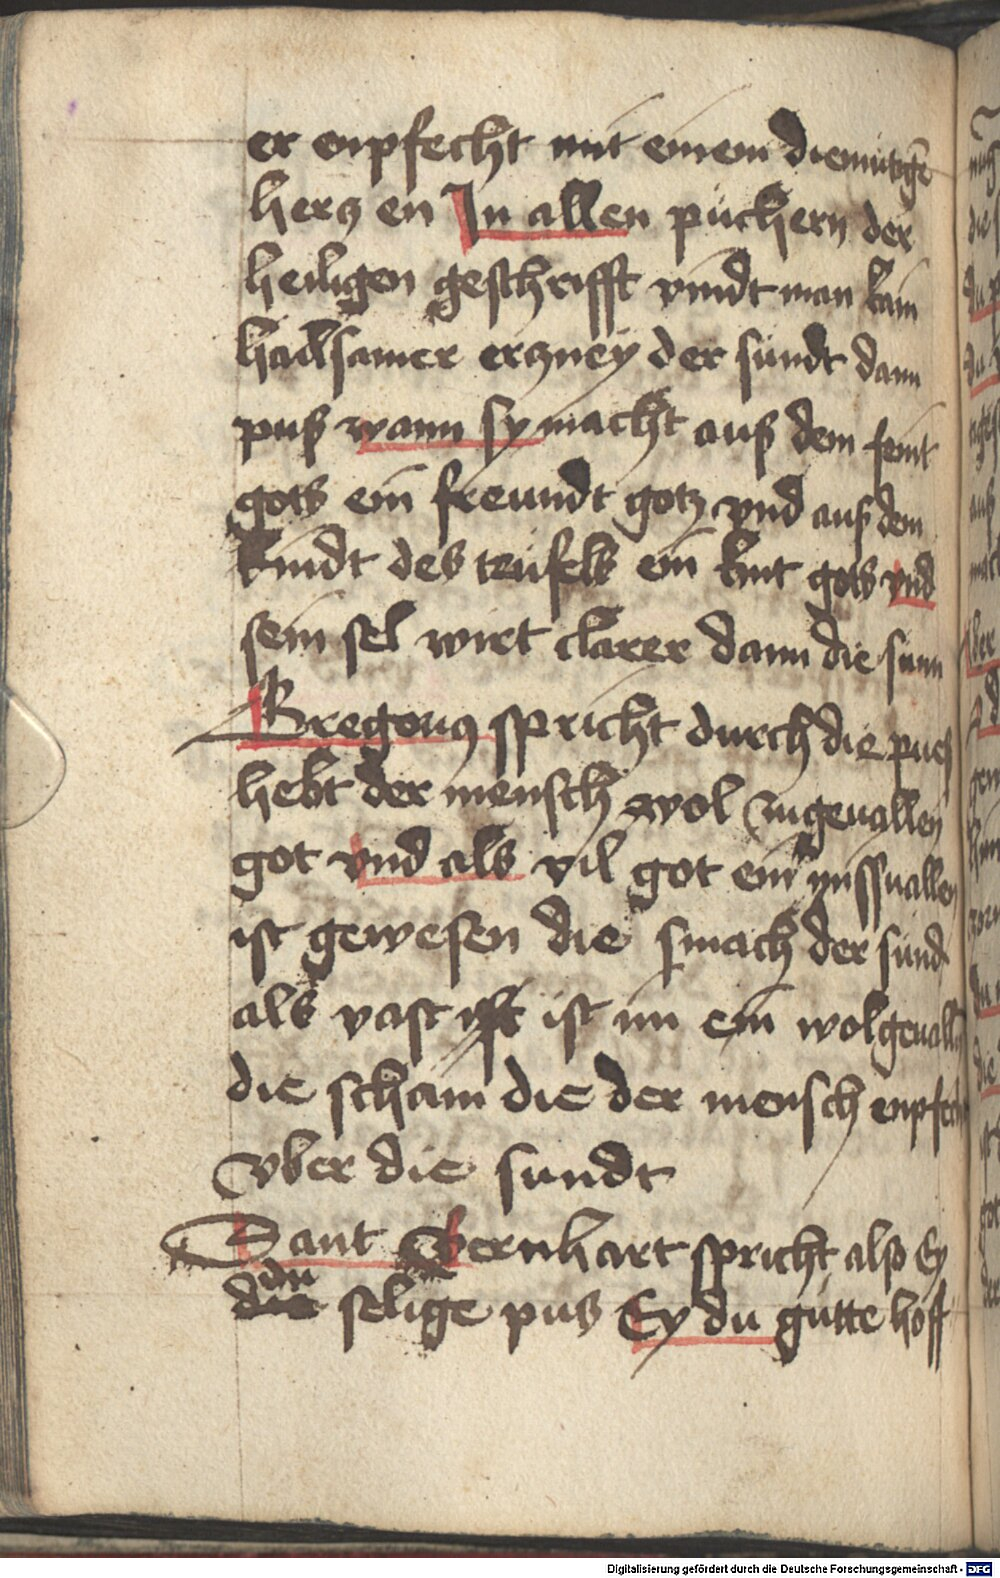 er enpfecht mit einem diemutigē
hercz en In allen püchern der
heiligen geschrifft vindt man kain
hailsamer erczney der sündt dann
puß wann sy macht auß dem feint
gots ein freundt gotz vnd auß dem
kindt des teüfels ein kint gots vnd
sein sel wirt clarer dann die sunn
Gregorius spricht durch die pues
hebt der mensch wol zugeuallen
got vnd als vil got ein missuallen
ist gewesen die smach der sünd
als vast ist im ein wolgeuall
die scham die der mensch enpfecht
vber die sundt
Sant Bernhart spricht also Ey
du selige pus Ey du gütte hoff
Digitalisierung gefördert durch die Deutsche Forschungsgemeinschaft - DFG